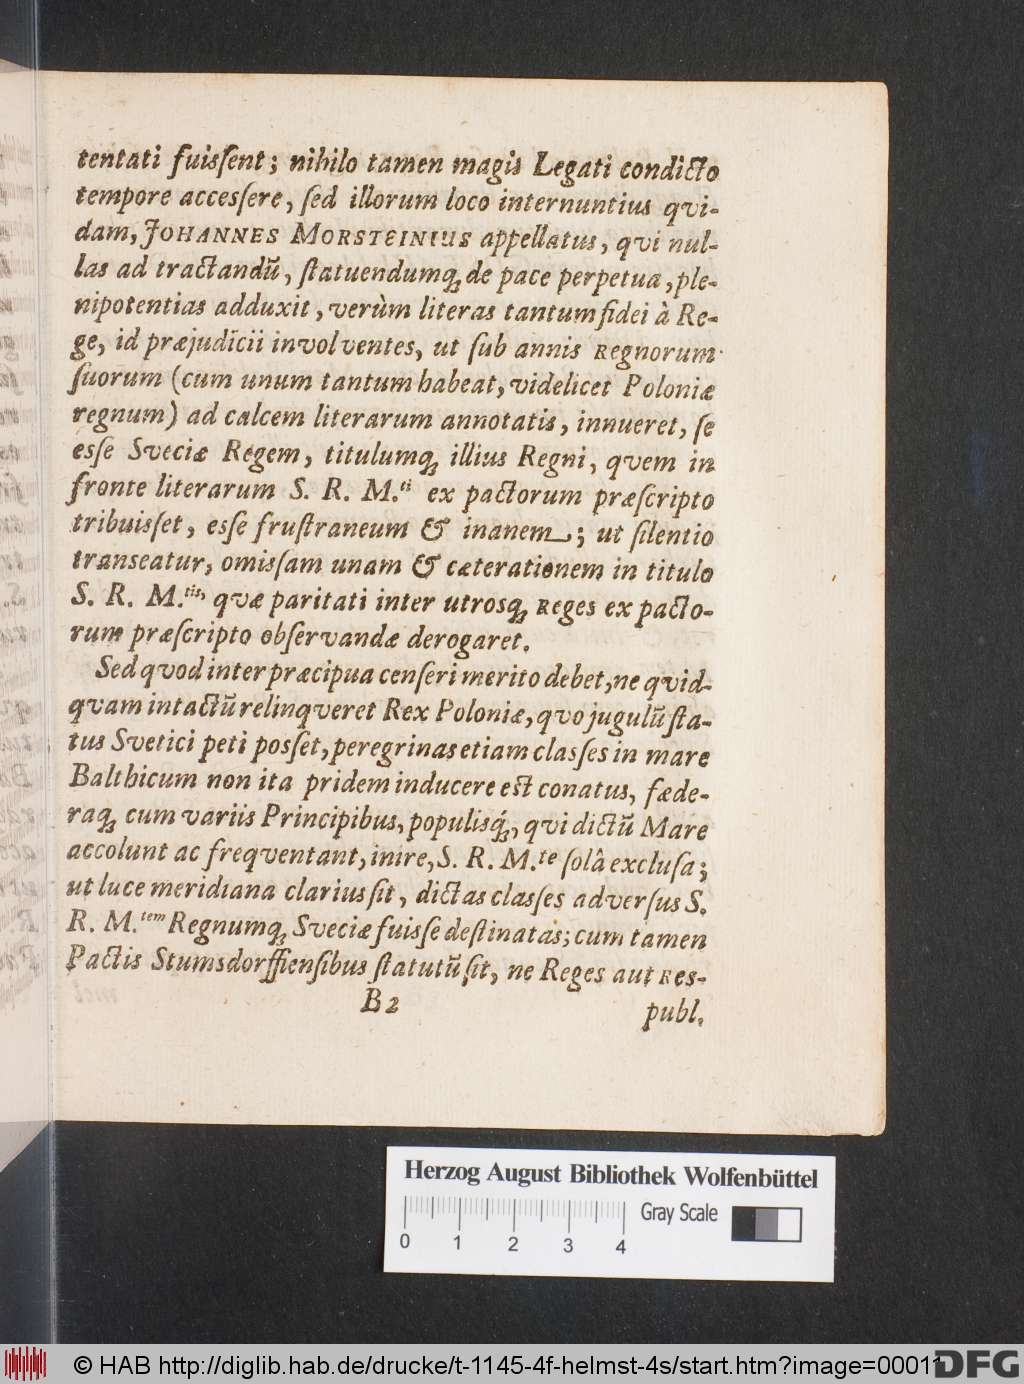 tentati fuisſent; nihilo tamen magis Legati condicto
tempore accesſere, ſed illorum loco internuntius qvi-
dam, JOHANNES MORSTEINIUS appellatus, qvi nul-
las ad tractandũ, ſtatuendumq́ue de pace perpetua, ple-
nipotentias adduxit, verùm literas tantum fidei à Re-
ge, id præjudicii involventes, ut ſub annis Regnorum
ſuorum (cum unum tantum habeat, videlicet Poloniæ
regnum) ad calcem literarum annotatis, innueret, ſe
esſe Sveciæ Regem, titulumꝗ illius Regni, qvem in
fronte literarum S. R. M.ti ex pactorum præſcripto
tribuisſet, esſe fruſtraneum & inanem; ut ſilentio
transeatur, omisſam unam & cæterationem in titulo
S. R. M.tis, qvæ paritati inter utrosꝗ Reges ex pacto-
rum præſcripto obſervandæ derogaret.
Sed qvod inter præcipua cenſeri merito debet, ne qvid-
qvam intactũ relinqveret Rex Poloniæ, qvo jugulũ ſta-
tus Svetici peti posſet, peregrinas etiam clasſes in mare
Balthicum non ita pridem inducere eſt conatus, fæde-
raꝗ cum variis Principibus, populisꝗ́, qvi dictũ Mare
accolunt ac freqventant, inire, S. R. M.te ſolâ excluſa;
ut luce meridiana clarius ſit, dictas clasſes adverſus S.
R. M.tem Regnumꝗ Sveciæ fuisſe deſtinatas; cum tamen
Pactis Stumsdorffienſibus ſtatutũ ſit, ne Reges aut Res-
B2
publ.
Herzog August Bibliothek Wolfenbüttel
Gray Scale
0 1 2 3 4
© HAB http://diglib.hab.de/drucke/t-1145-4f-helmst-4s/start.htm?image=00011
DFG